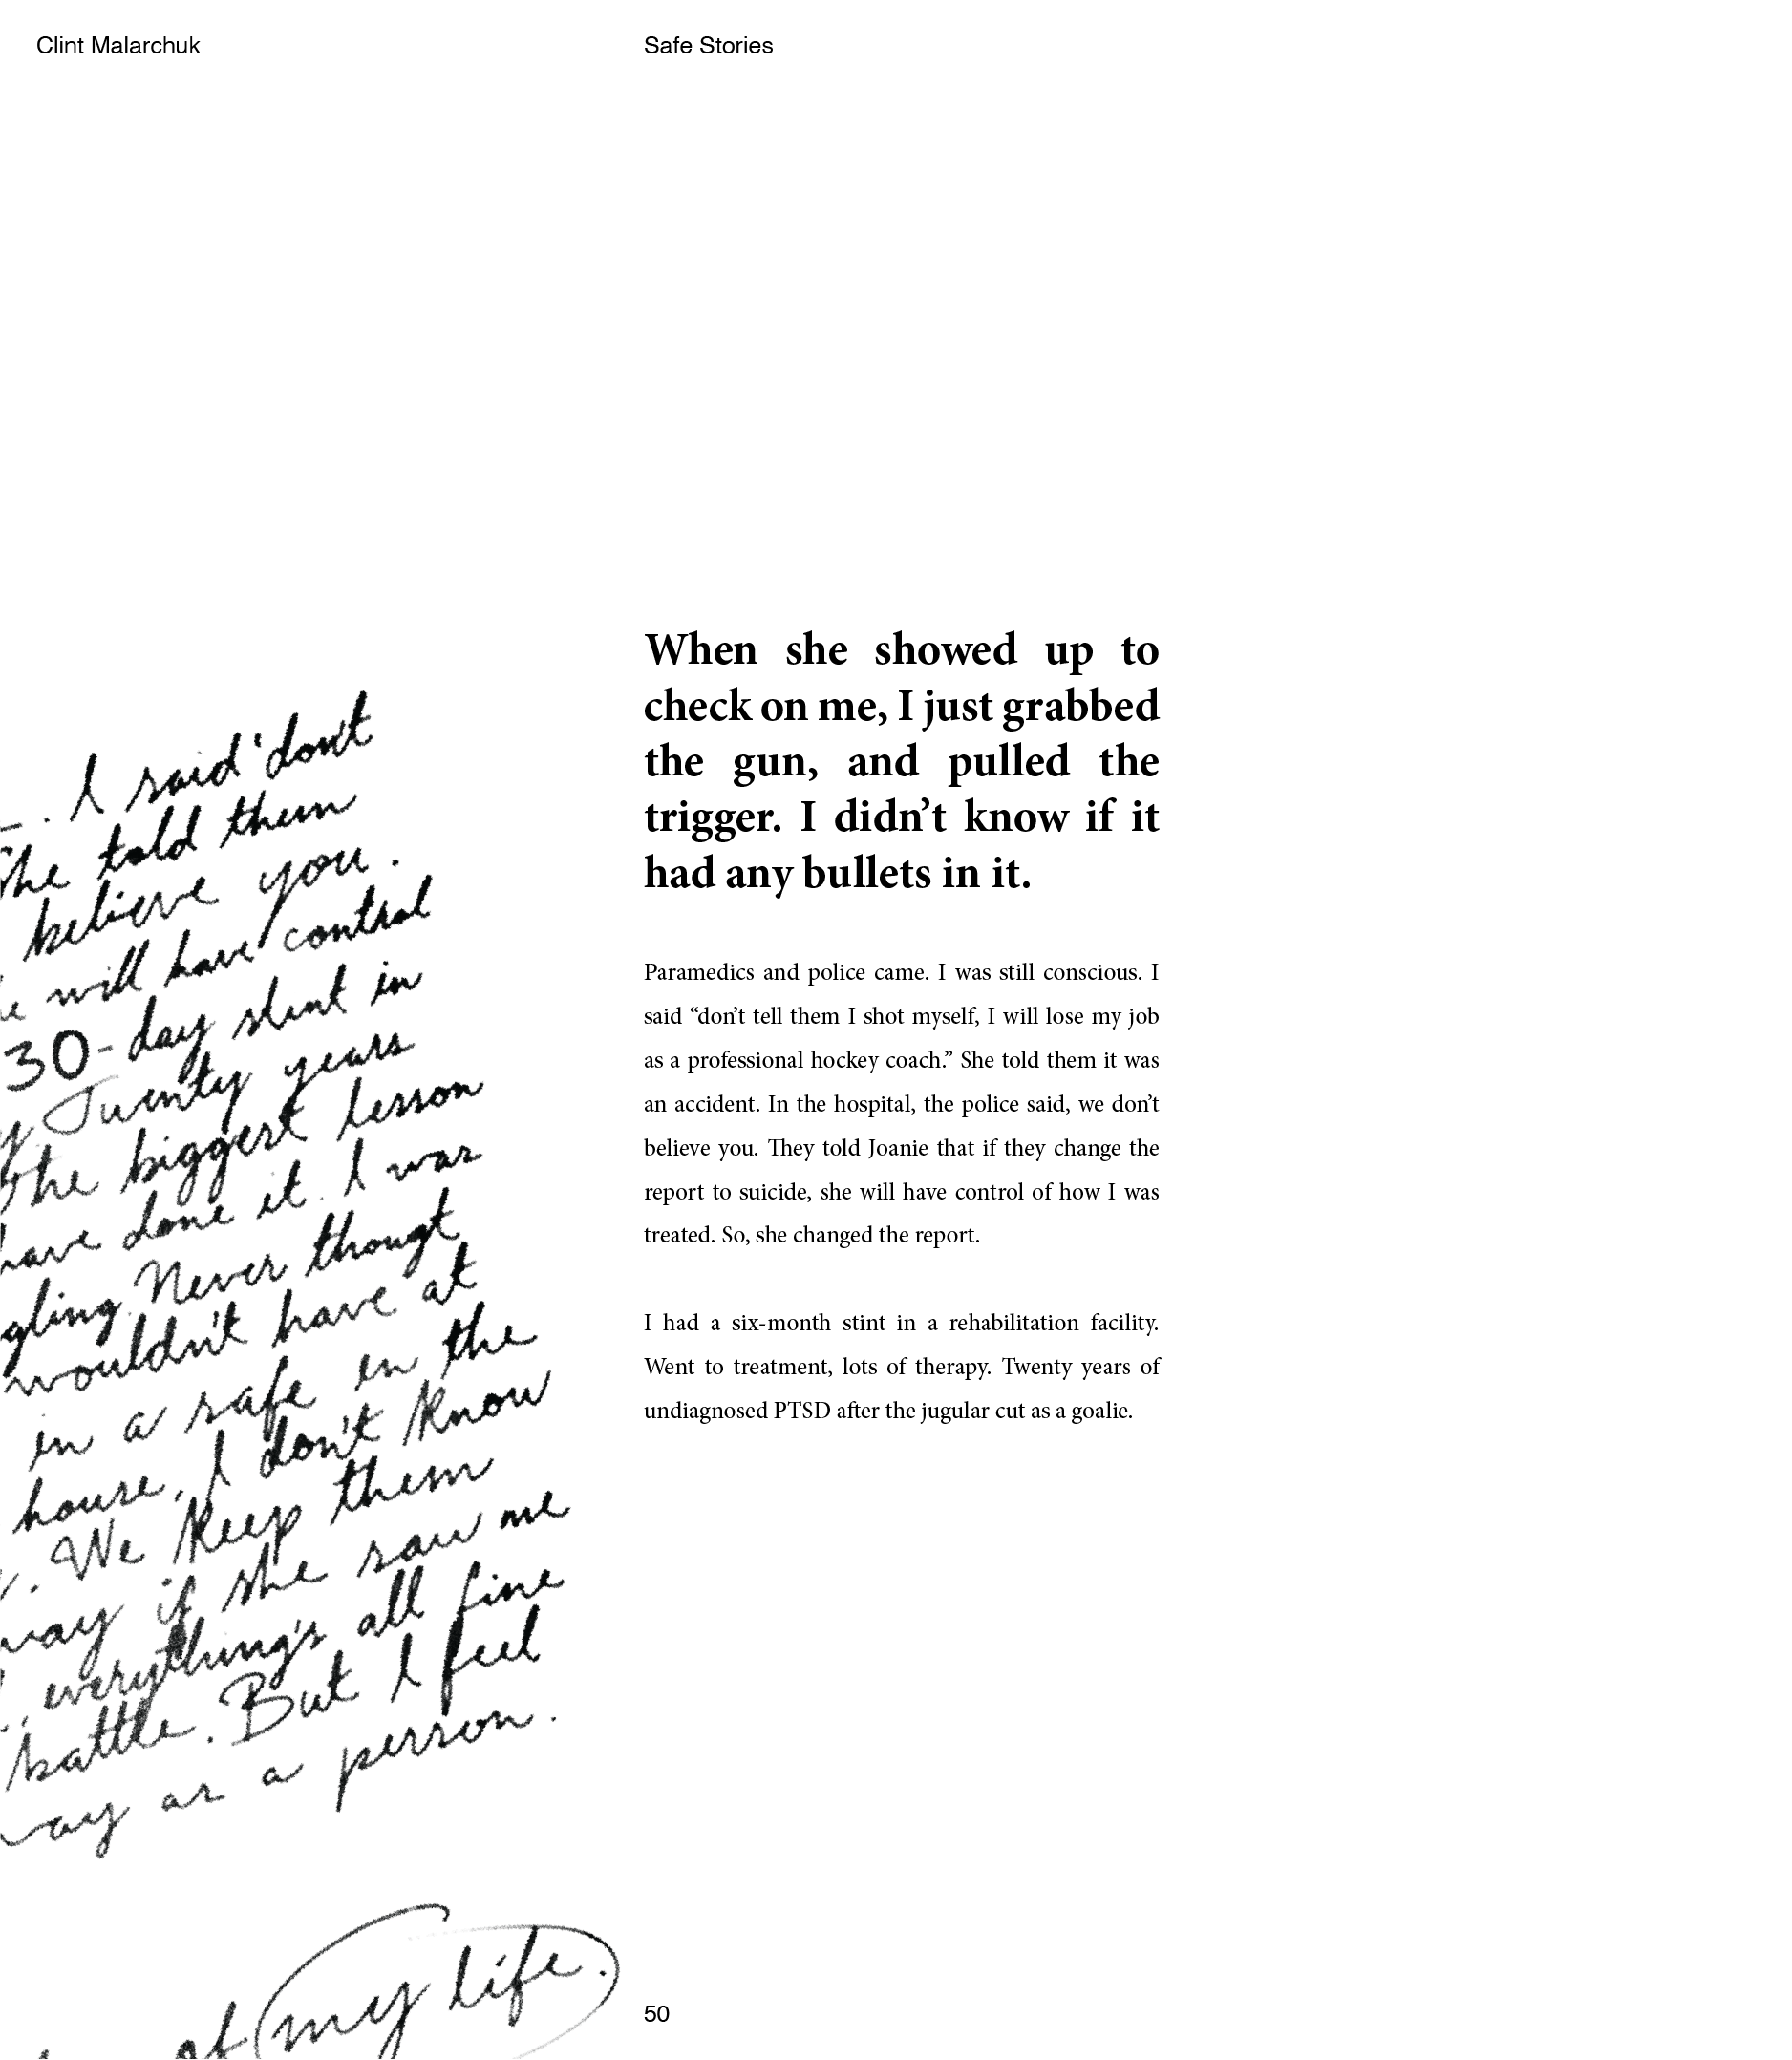 Clint Malarchuk
Safe Stories
. I said 'don't
The told them
believe you.
will have control
30-day stint in
Twenty years
The biggest lesson
have done it. I was
gling. Never thougt
wouldn't have at
in a safe in the
house, I don't know
. We keep them
way if she saw me
, everything's all fine
battle. But I feel
way as a person.
of my life.
When she showed up to
check on me, I just grabbed
the gun, and pulled the
trigger. I didn’t know if it
had any bullets in it.
Paramedics and police came. I was still conscious. I
said “don’t tell them I shot myself, I will lose my job
as a professional hockey coach.” She told them it was
an accident. In the hospital, the police said, we don’t
believe you. They told Joanie that if they change the
report to suicide, she will have control of how I was
treated. So, she changed the report.
I had a six-month stint in a rehabilitation facility.
Went to treatment, lots of therapy. Twenty years of
undiagnosed PTSD after the jugular cut as a goalie.
50